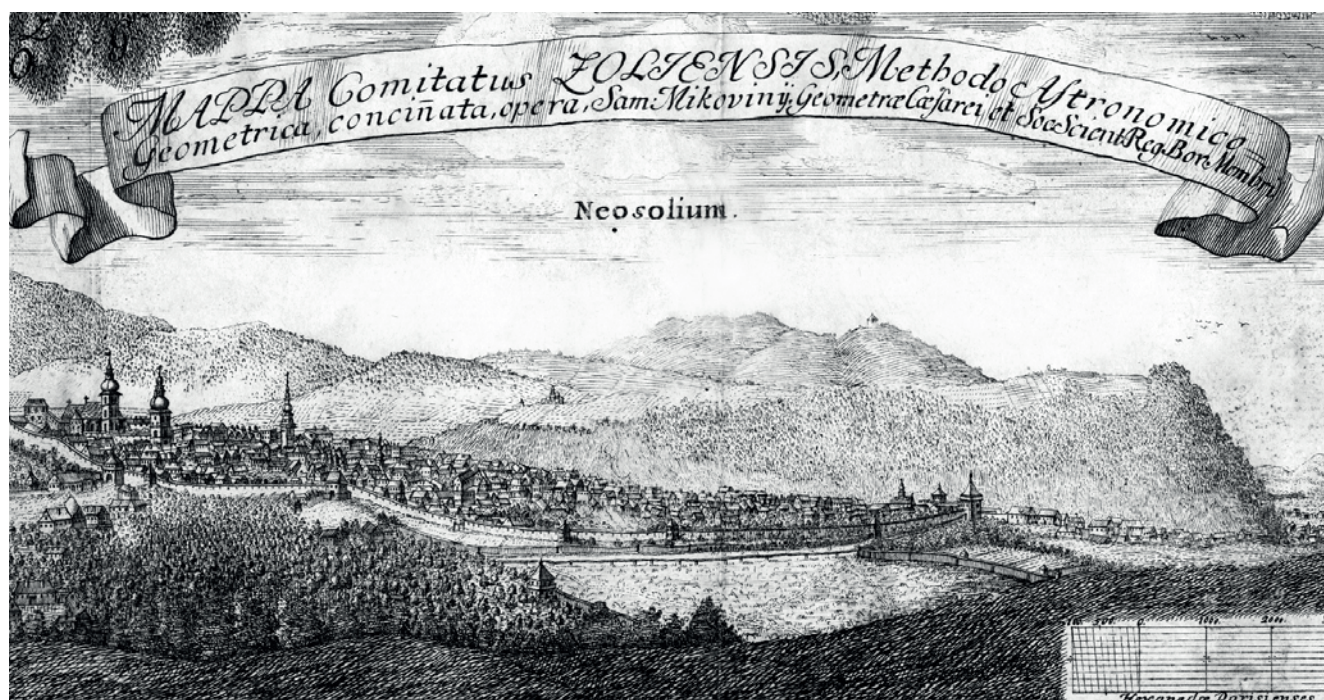 MAPPA Comitatus ZOLIENSIS, Methodo Astronomico
Geometrica, conciñata, opera, Sam. Mikovinÿ, Geometræ Cæsarei, et Soc Scient Reg. Bor. Membri
Neosolium.
500. 0 1000 2000
Hexapedæ Parisienses